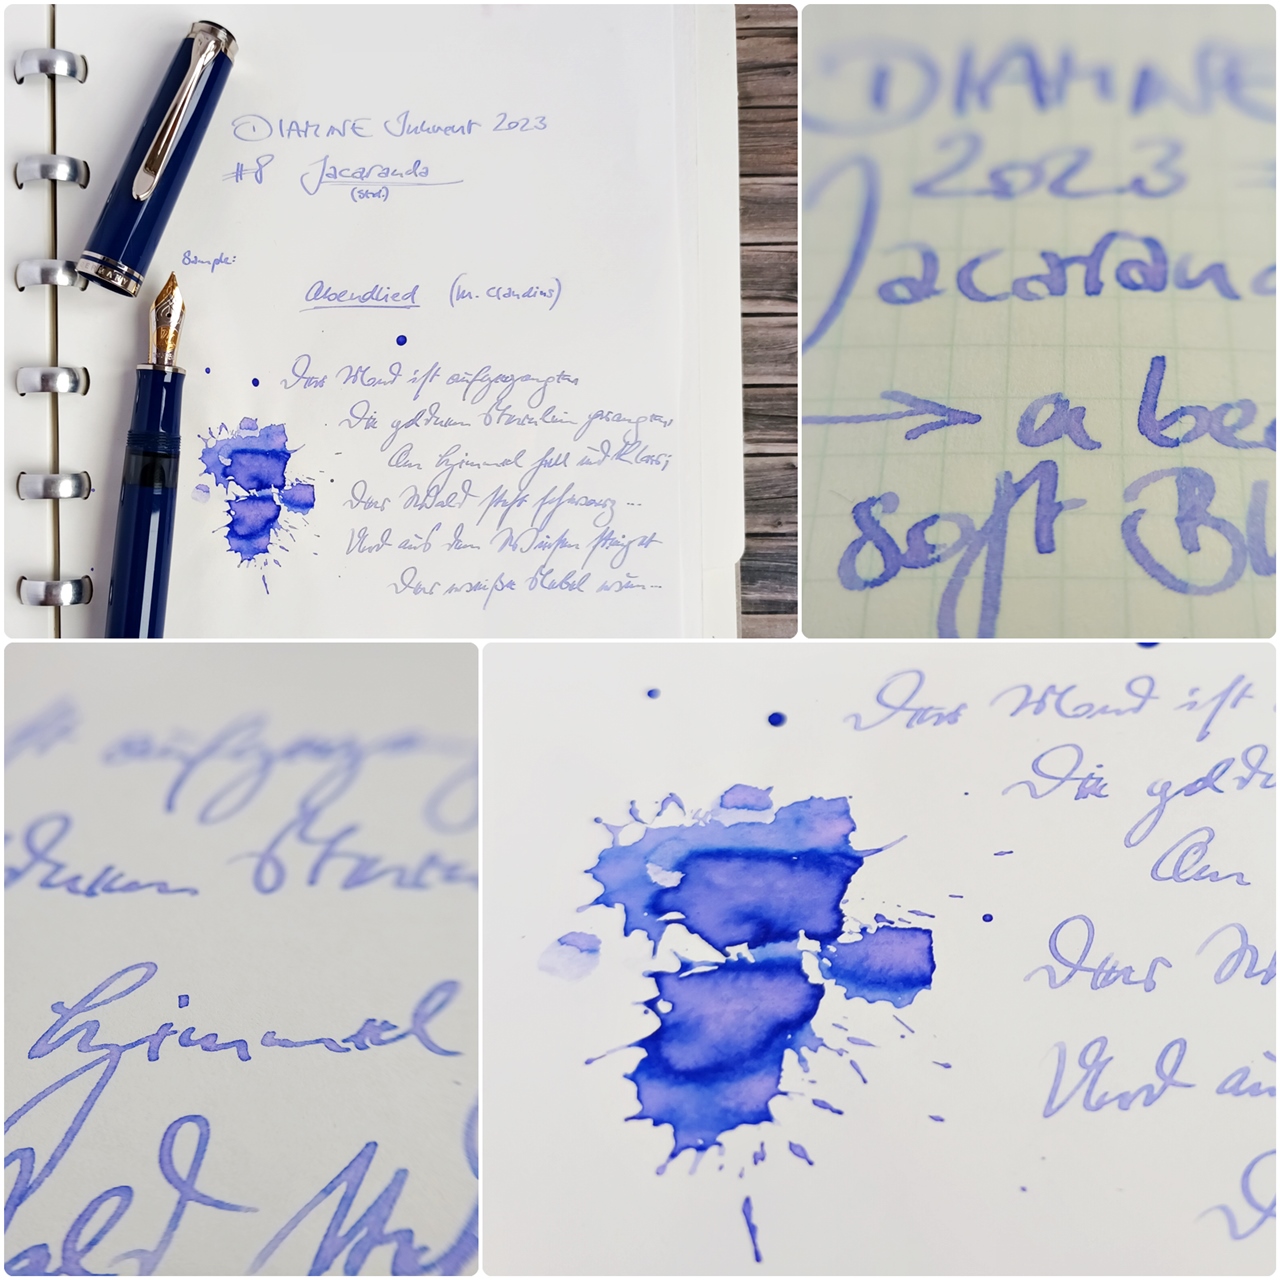 DIAMINE Inkvent 2023
#8 Jacaranda
(Std.)
Sample:
Abendlied (M. Claudius)
Der Mond ist aufgegangen
Die goldnen Sternlein prangen
Am Himmel hell und klar;
Der Wald steht schwarz ...
Und aus den Wiesen steiget
Der weiße Nebel wun...
DIAMINE
2023
Jacaran
→ a be
soft Bl
aufgegang
dnen Stern
Himmel
ald
Der Mond ist
Die gold
Am
Der
Und au
D